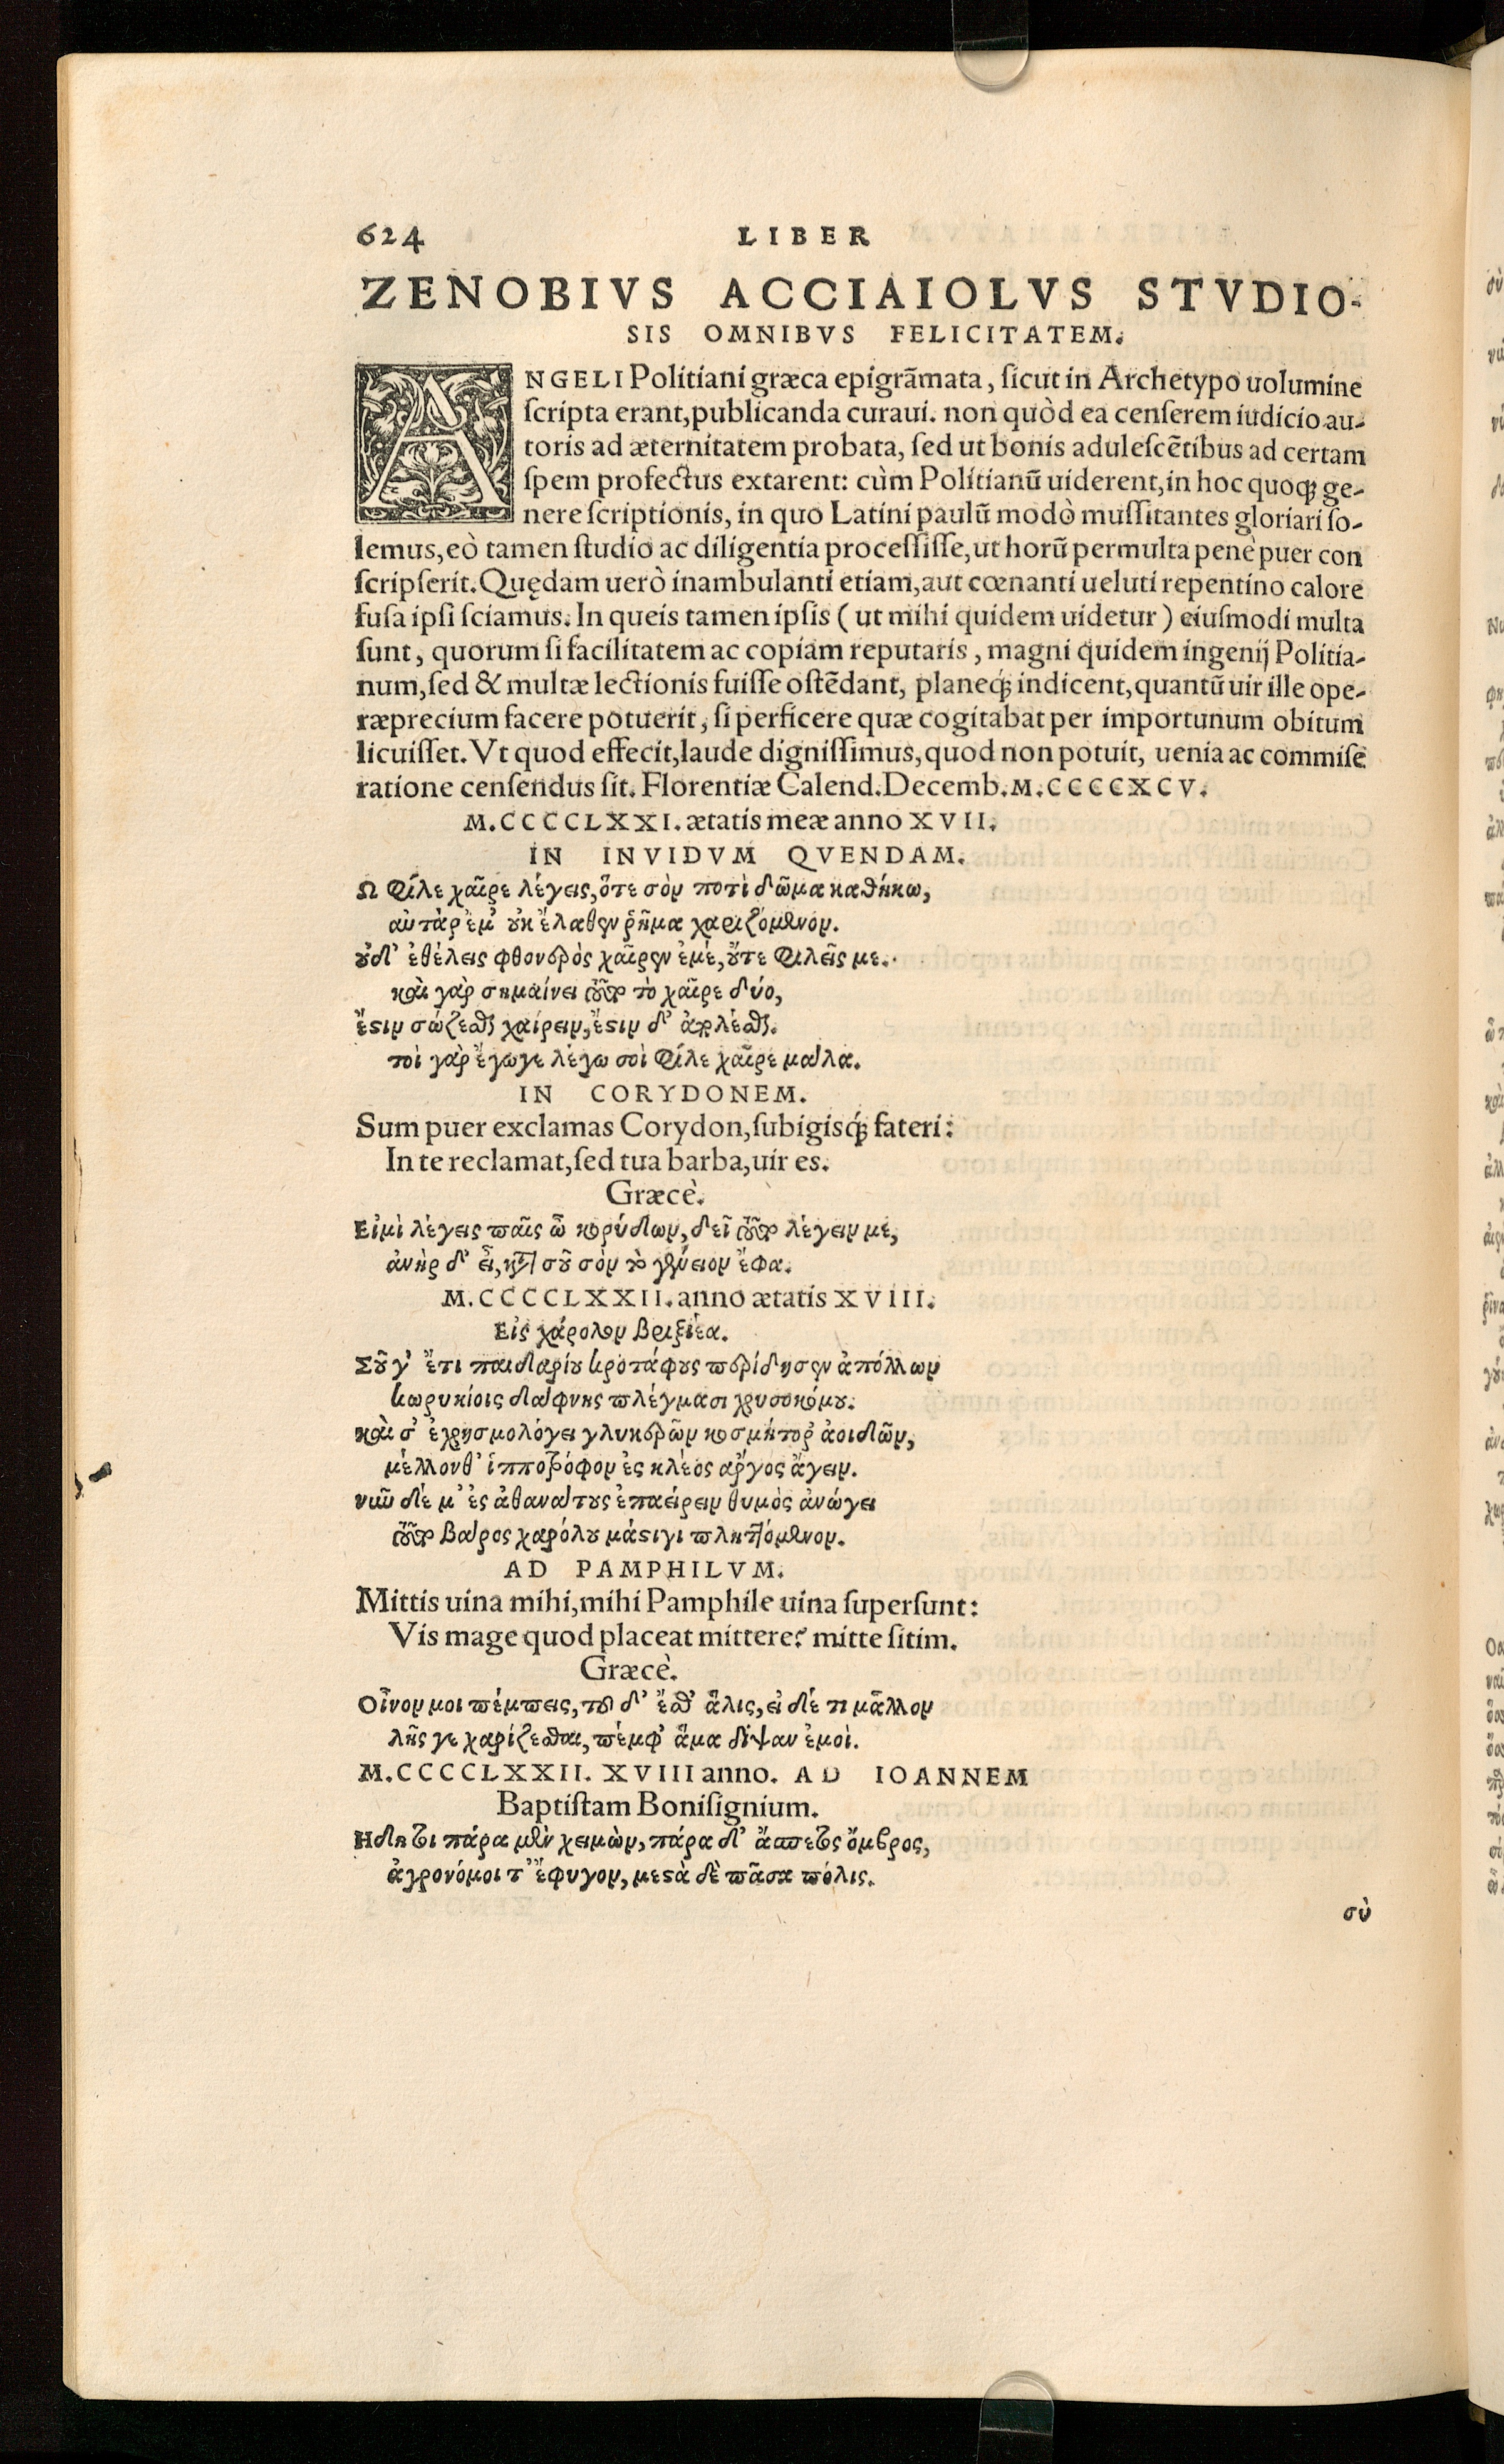 624 LIBER
ZENOBIVS ACCIAIOLVS STVDIO-
SIS OMNIBVS FELICITATEM.
ANGELI Politiani græca epigrãmata, ſicut in Archetypo uolumine
ſcripta erant, publicanda curaui. non quòd ea cenſerem iudicio au-
toris ad æternitatem probata, ſed ut bonis aduleſcẽtibus ad certam
ſpem profectus extarent: cùm Politianũ uiderent, in hoc quoqꝫ ge-
nere ſcriptionis, in quo Latini paulũ modò muſſitantes gloriari ſo-
lemus, eò tamen ſtudio ac diligentia proceſſiſſe, ut horũ permulta penè puer con
ſcripſerit. Quędam uerò inambulanti etiam, aut cœnanti ueluti repentino calore
fuſa ipſi ſciamus. In queis tamen ipſis ( ut mihi quidem uidetur ) eiuſmodi multa
ſunt, quorum ſi facilitatem ac copiam reputaris, magni quidem ingenij Politia-
num, ſed & multæ lectionis fuiſſe oſtẽdant, planeqꝫ́ indicent, quantũ uir ille ope-
ræprecium facere potuerit, ſi perficere quæ cogitabat per importunum obitum
licuiſſet. Vt quod effecit, laude digniſſimus, quod non potuit, uenia ac commiſe
ratione cenſendus ſit. Florentiæ Calend. Decemb. M.CCCCXCV.
M.CCCCLXXI. ætatis meæ anno XVII.
IN INVIDVM QVENDAM.
Ω φίλε χαῖρε λέγεις, ὅτε σὸν ποτὶ δῶμα καθήκω,
αὐτὰρ ἔμ' οὐκ ἔλαθεν ῥῆμα χαριζόμενον.
οὐδ' ἐθέλεις φθονερὸς χαῖρεν ἐμέ, οὔτε φιλεῖς με.
καὶ γὰρ σημαίνει τοῦτο τὸ χαῖρε δύο,
ἔστιν σώζεσθαι χαίρειν, ἔστιν δ' ἀπολέσθαι.
τοὶ γὰρ ἔγωγε λέγω σοὶ φίλε χαῖρε μάλα.
IN CORYDONEM.
Sum puer exclamas Corydon, ſubigisqꝫ́ fateri:
In te reclamat, ſed tua barba, uir es.
Græcè.
Εἰμὶ λέγεις παῖς ὦ κορύδων, δεῖ τοῦτο λέγειν με,
ἀνὴρ δ' εἶ, κατὰ σοῦ σὸν τὸ γένειον ἔφα.
M.CCCCLXXII. anno ætatis XVIII.
Εἰς χάρολον βριξιέα.
Σοῦ γ' ἔτι παιδαρίου κροτάφους περίδησεν ἀπόλλων
κωρυκίοις δάφνης πλέγμασι χρυσοκόμου.
καὶ σ' ἐχρησμολόγει γλυκερῶν κοσμήτορ' ἀοιδῶν,
μέλλονθ' ἱπποτρόφον ἐς κλέος ἄργος ἄγειν.
νῦν δέ μ' ἐς ἀθανάτους ἐπαείρειν θυμὸς ἀνώγει
τοῦτο βάρος χαρόλου μάστιγι πληττόμενον.
AD PAMPHILVM.
Mittis uina mihi, mihi Pamphile uina ſuperſunt:
Vis mage quod placeat mittere? mitte ſitim.
Græcè.
Οἶνον μοι πέμπεις, τοῦ δ' ἔσθ' ἅλις, εἰ δέ τι μᾶλλον
λῇς γε χαρίζεσθαι, πέμφ' ἅμα δίψαν ἐμοὶ.
M.CCCCLXXII. XVIII anno. AD IOANNEM
Baptiſtam Boniſignium.
Ηδη τοι πάρα μὲν χειμὼν, πάρα δ' ἄσπετος ὄμβρος,
ἀγρονόμοι τ' ἔφυγον, μεστὰ δὲ πᾶσα πόλις.
σὺ